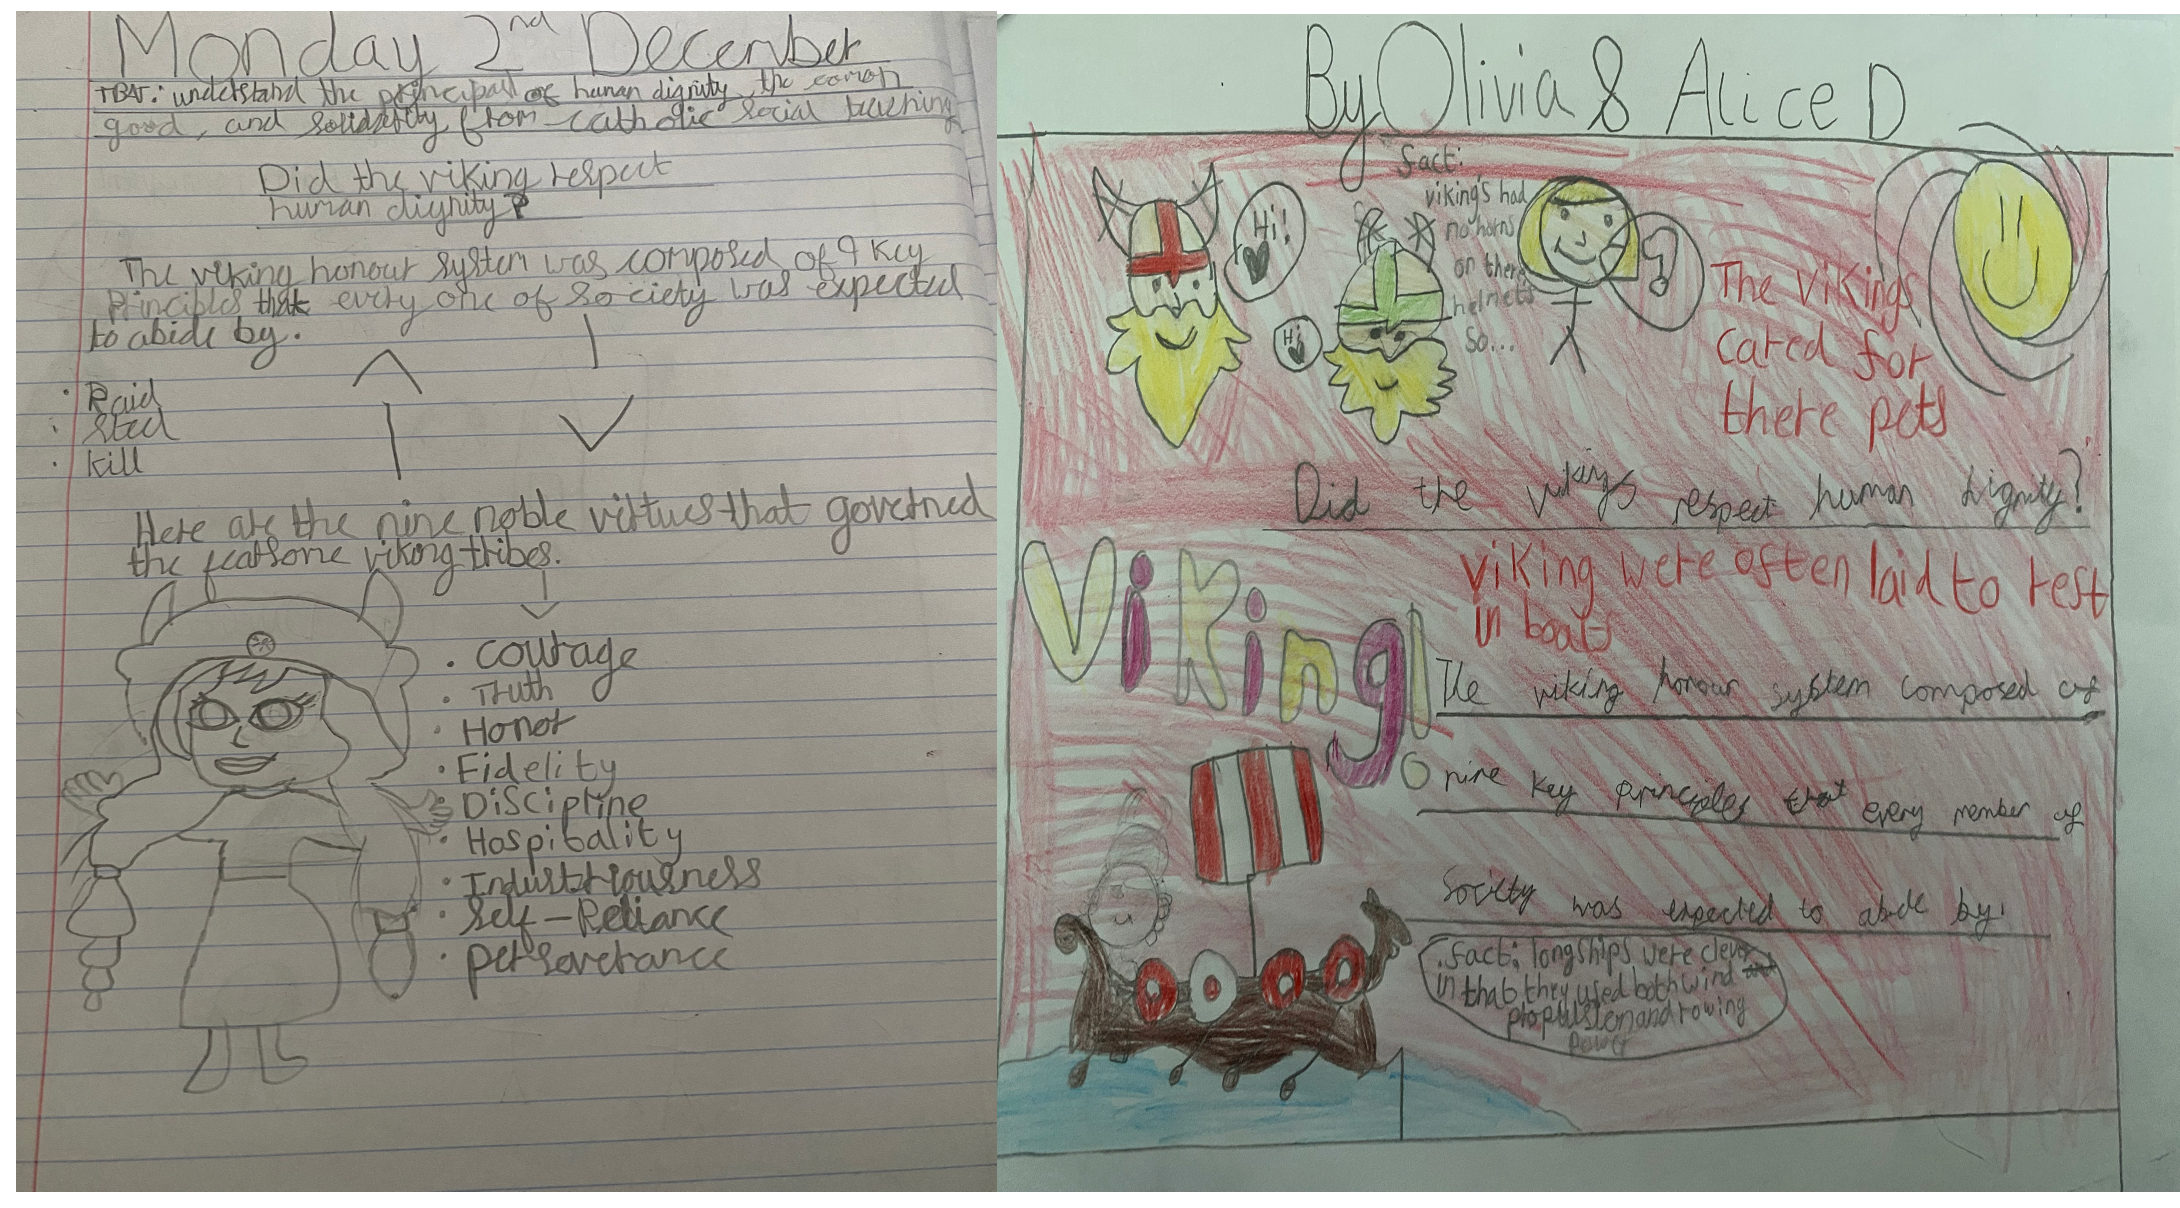 Monday 2nd December
TBAT: understand the principal of human dignity, the comon
good, and solidarity from catholic social teaching
Did the viking respect
human dignity?
The viking honour system was composed of 9 key
principles that every one of society was expected
to abide by.
· Raid
· Steel
· Kill
Here are the nine noble virtues that governed
the fearsome viking tribes.
· Courage
· Truth
· Honor
· Fidelity
· Discipline
· Hospitality
· Industriousness
· Self-Reliance
· perseverance
By Olivia & Alice D
Fact:
viking's had
no horns
on there
helmets
So...
Hi!
Hi
?
The Vikings
cared for
there pets
Did the vikings respect human dignity?
Viking!
viking were often laid to rest
in boats
The viking honour system composed of
nine key principles that every member of
society was expected to abide by.
.fact: longships were clever
in that they used both wind
propulsion and rowing
power